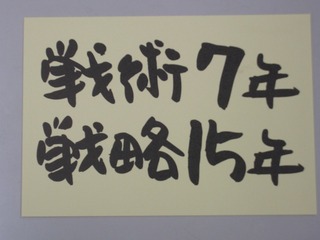 戦術7年
戦略15年